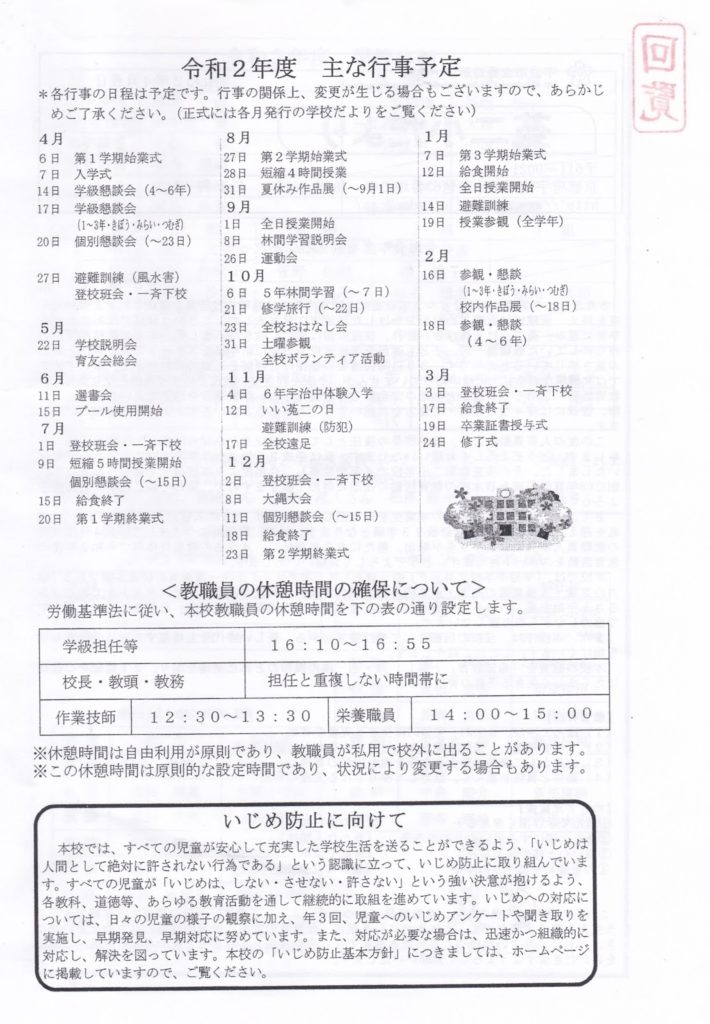 回覧
令和２年度　主な行事予定
＊各行事の日程は予定です。行事の関係上、変更が生じる場合もございますので、あらかじ
めご了承ください。（正式には各月発行の学校だよりをご覧ください）
４月
６日　第１学期始業式
７日　入学式
14日　学級懇談会（4～6年）
17日　学級懇談会
（1～3年・きぼう・みらい・つむぎ）
20日　個別懇談会（～23日）
27日　避難訓練（風水害）
登校班会・一斉下校
５月
22日　学校説明会
育友会総会
６月
11日　選書会
15日　プール使用開始
７月
1日　登校班会・一斉下校
9日　短縮５時間授業開始
個別懇談会（～15日）
15日　給食終了
20日　第１学期終業式
８月
27日　第２学期始業式
28日　短縮４時間授業
31日　夏休み作品展（～9月1日）
９月
1日　全日授業開始
8日　林間学習説明会
26日　運動会
１０月
６日　５年林間学習（～７日）
21日　修学旅行（～22日）
23日　全校おはなし会
31日　土曜参観
全校ボランティア活動
１１月
４日　６年宇治中体験入学
12日　いい菟二の日
避難訓練（防犯）
17日　全校遠足
１２月
2日　登校班会・一斉下校
8日　大縄大会
11日　個別懇談会（～15日）
18日　給食終了
23日　第２学期終業式
１月
７日　第３学期始業式
12日　給食開始
全日授業開始
14日　避難訓練
19日　授業参観（全学年）
２月
16日　参観・懇談
（1～3年・きぼう・みらい・つむぎ）
校内作品展（～18日）
18日　参観・懇談
（４～６年）
３月
３日　登校班会・一斉下校
17日　給食終了
19日　卒業証書授与式
24日　修了式
＜教職員の休憩時間の確保について＞
労働基準法に従い、本校教職員の休憩時間を下の表の通り設定します。
学級担任等　１６：１０～１６：５５
校長・教頭・教務　担任と重複しない時間帯に
作業技師　１２：３０～１３：３０　栄養職員　１４：００～１５：００
※休憩時間は自由利用が原則であり、教職員が私用で校外に出ることがあります。
※この休憩時間は原則的な設定時間であり、状況により変更する場合もあります。
いじめ防止に向けて
本校では、すべての児童が安心して充実した学校生活を送ることができるよう、「いじめは
人間として絶対に許されない行為である」という認識に立って、いじめ防止に取り組んでいま
す。すべての児童が「いじめは、しない・させない・許さない」という強い決意が抱けるよう、
各教科、道徳等、あらゆる教育活動を通して継続的に取組を進めています。いじめへの対応に
ついては、日々の児童の様子の観察に加え、年３回、児童へのいじめアンケートや聞き取りを
実施し、早期発見、早期対応に努めています。また、対応が必要な場合は、迅速かつ組織的に
対応し、解決を図っています。本校の「いじめ防止基本方針」につきましては、ホームページ
に掲載していますので、ご覧ください。